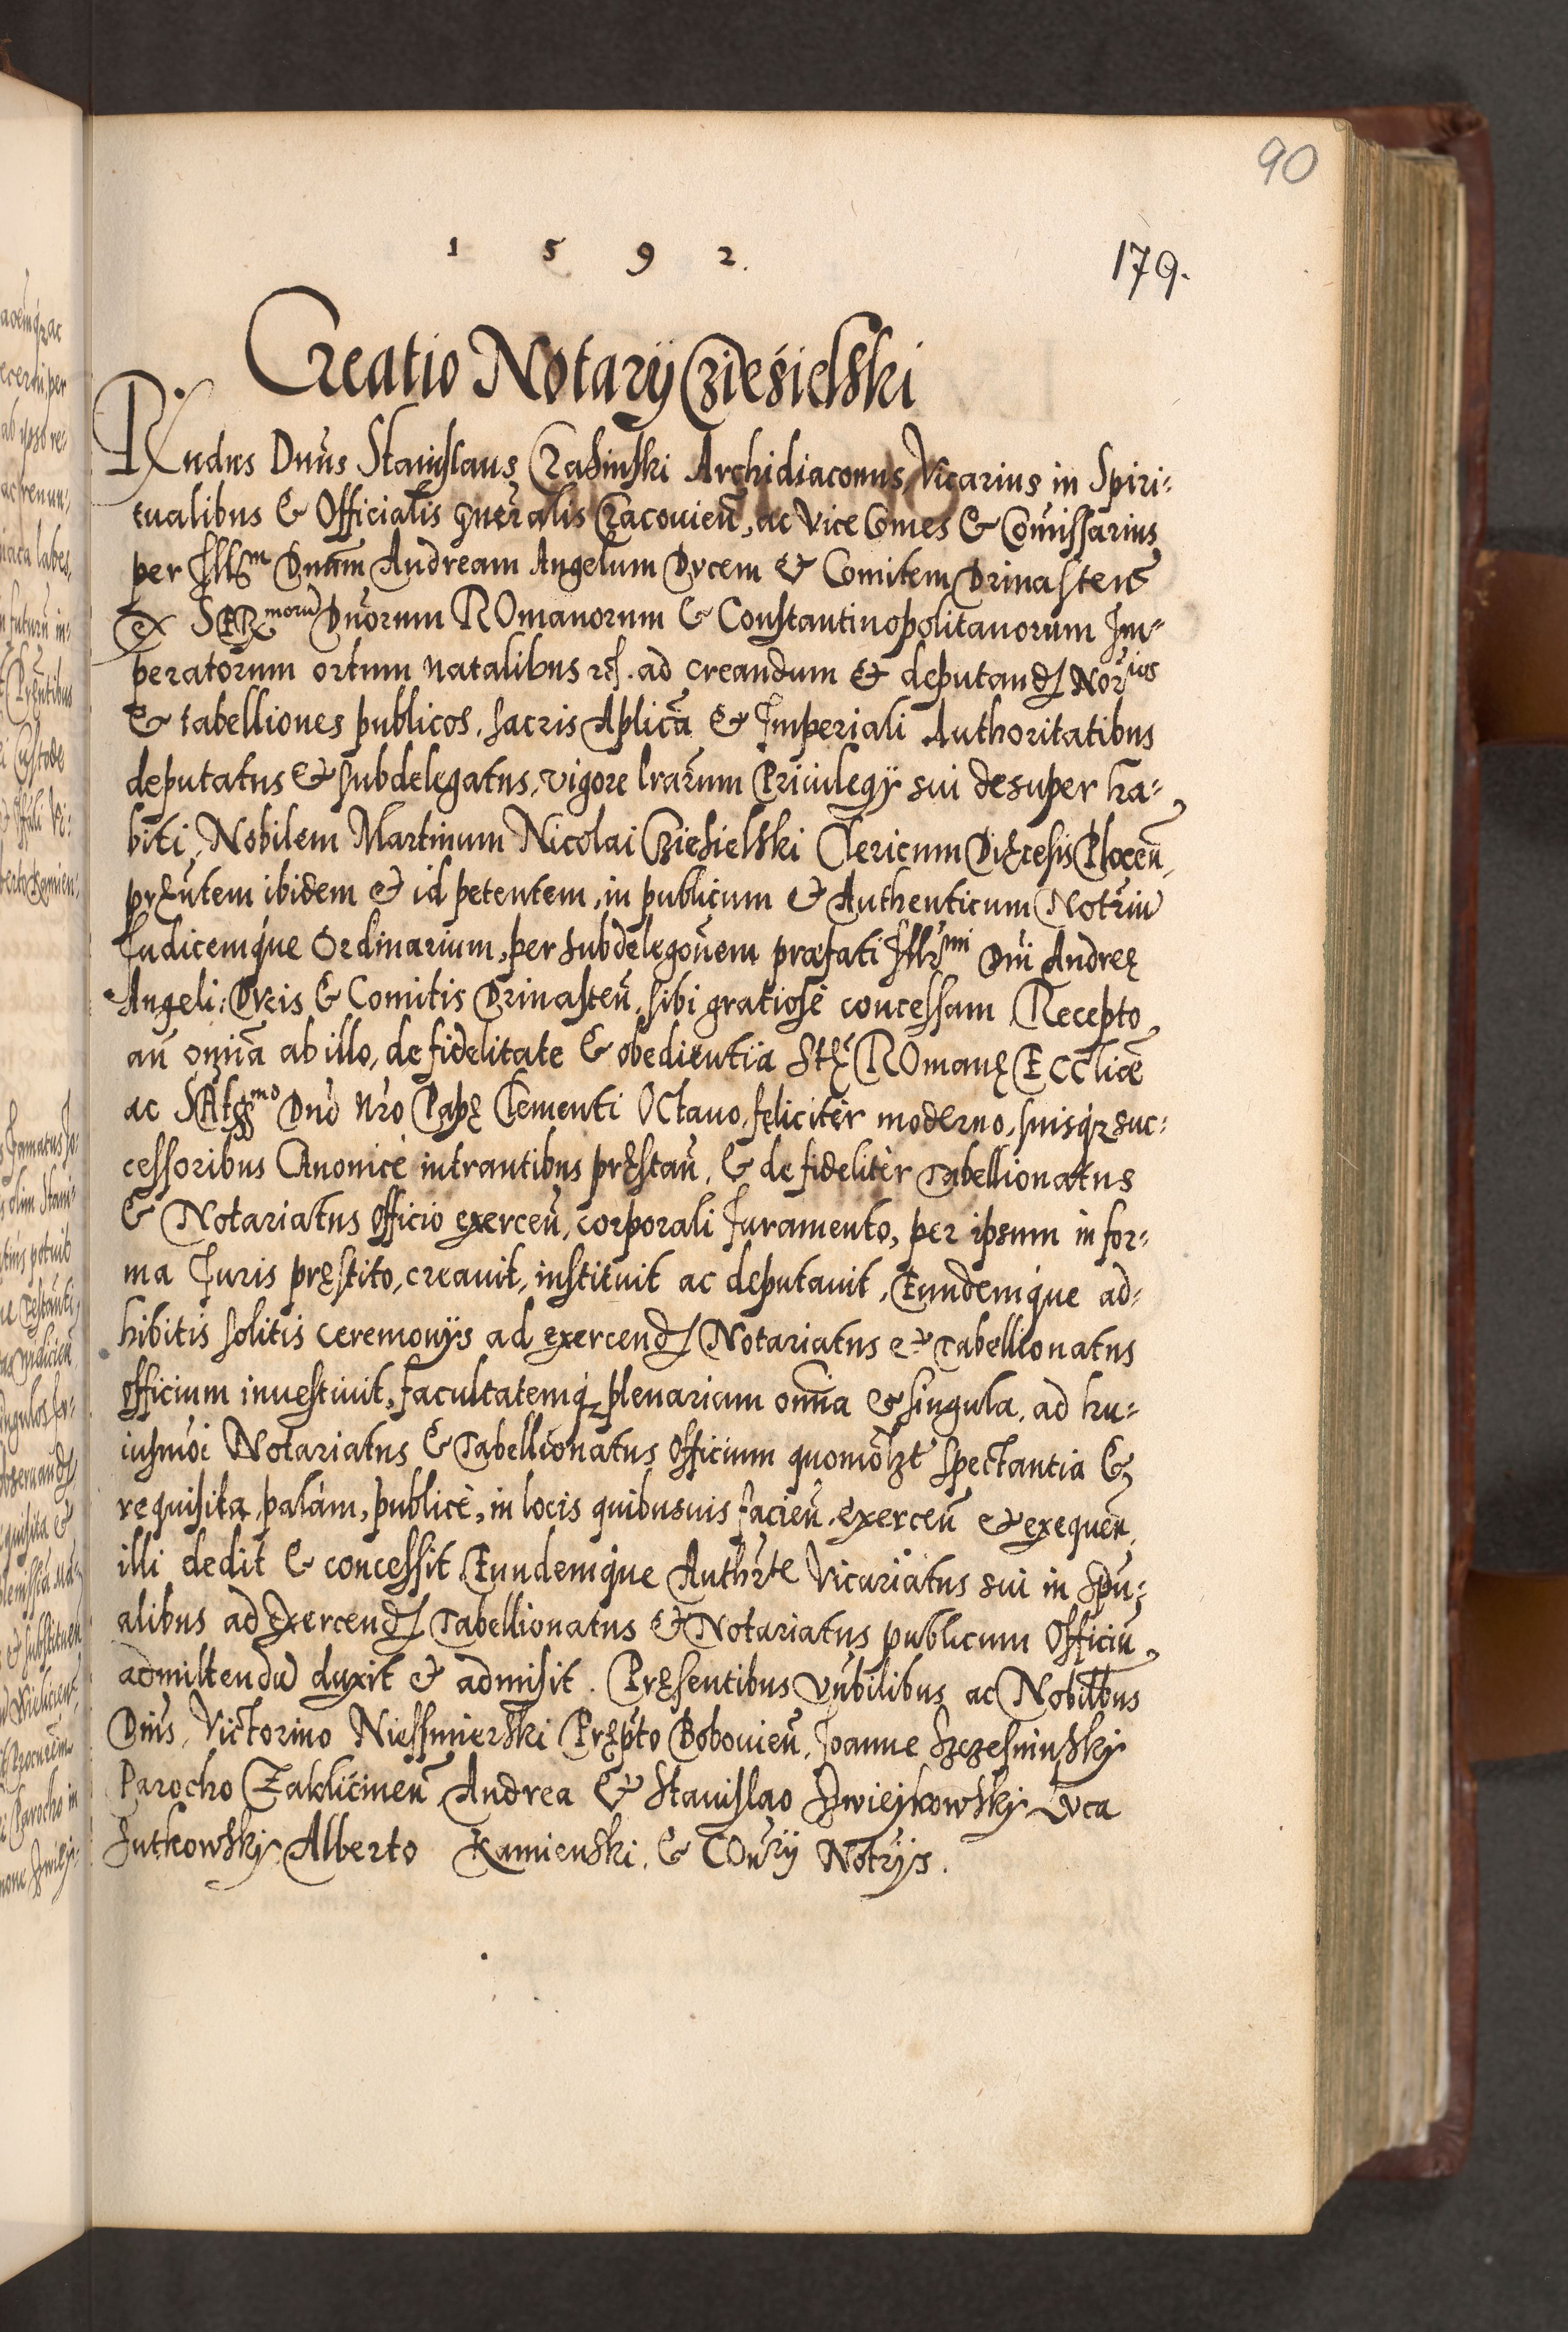 90
1 5 9 2.
179.
Creatio Notarÿ Cziesielski
Rndus Dnus Stanislaus Crasinski Archidiaconus, Vicarius in Spiri:
tualibus & Officialis gneralis Cracouien, ac Vice Comes & Comissarius
per Illm Dnum Andream Angelum Ducem & Comitem Drinasten
ex SERmorum Dnorum ROmanorum & Constantinopolitanorum Im=
peratorum ortum natalibus etc. ad creandum & deputand Norios
& tabelliones publicos, sacris Aplica & Imperiali Authoritatibus
deputatus & subdelegatus, vigore lrarum Priuilegÿ sui desuper ha=
biti, Nobilem Martinum Nicolai Cziesielski Clericum Dięcesis Plocen
pręntem ibidem & id petentem, in publicum & Authenticum Notriu
Iudicemque Ordinarium, per subdelegonem præfati Illrmi Dni Andreę
Angeli Ducis & Comitis Drinasten, sibi gratiosè concessam Recepto
an omnia ab illo, de fidelitate & obedientia Stę ROmanę ECCliæ
ac SAtssmo Dno Nro Papę Clementi OCtauo, feliciter moderno, suisq; suc:
cessoribus CAnonicè intrantibus pręstan, & de fideliter tabellionatus
& Notariatus Officio exercen, corporali Iuramento, per ipsum in for:
ma Iuris pręstito, creauit, instituit ac deputauit, Eundemque ad:
hibitis solitis ceremonÿs ad exercend Notariatus & tabellionatus
Officium inuestiuit, facultatemq; plenariam omnia & singula, ad hu:
iusmoi Notariatus & Tabellionatus Officium quomolzt spectantia &
requisita, palam, publicè, in locis quibusuis facien, exercen & exequen,
illi dedit & concessit Eundemque Authrte Vicariatus sui in Spu:
alibus ad exercend Tabellionatus & Notariatus publicum Officiu
admittendu duxit & admisit. Pręsentibus Vnbilibus ac Nobilbus
Dnis, Victorino Niessmierski Pręp̄to Bobouien, Joanne Szczesninsky
Parocho Zakliċinen Andrea & Stanislao Zwiejkowsky Luca
Zutkowsky Alberto Kamienski, & COnrÿ Notrÿs.